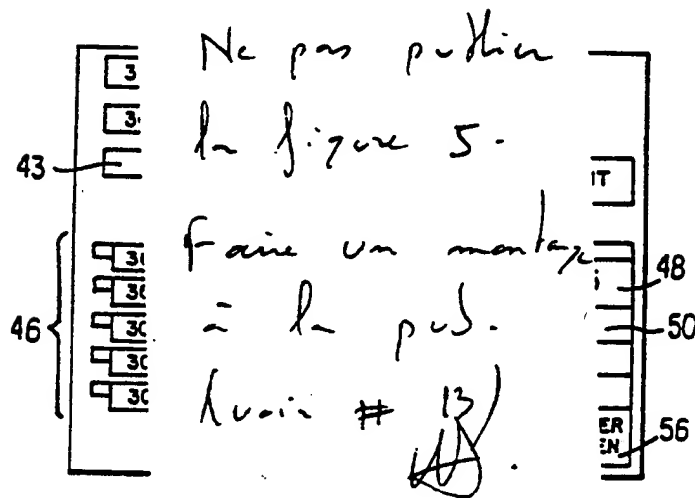 Ne pas publier
la figure 5.
Faire un montage
à la pub.
# 13
43
46
48
50
56
3
3
30
30
30
30
30
IT
ER
EN